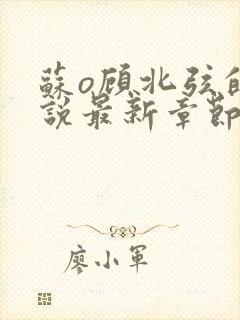 蘇o顧北弦的
說最新章節
廖小軍